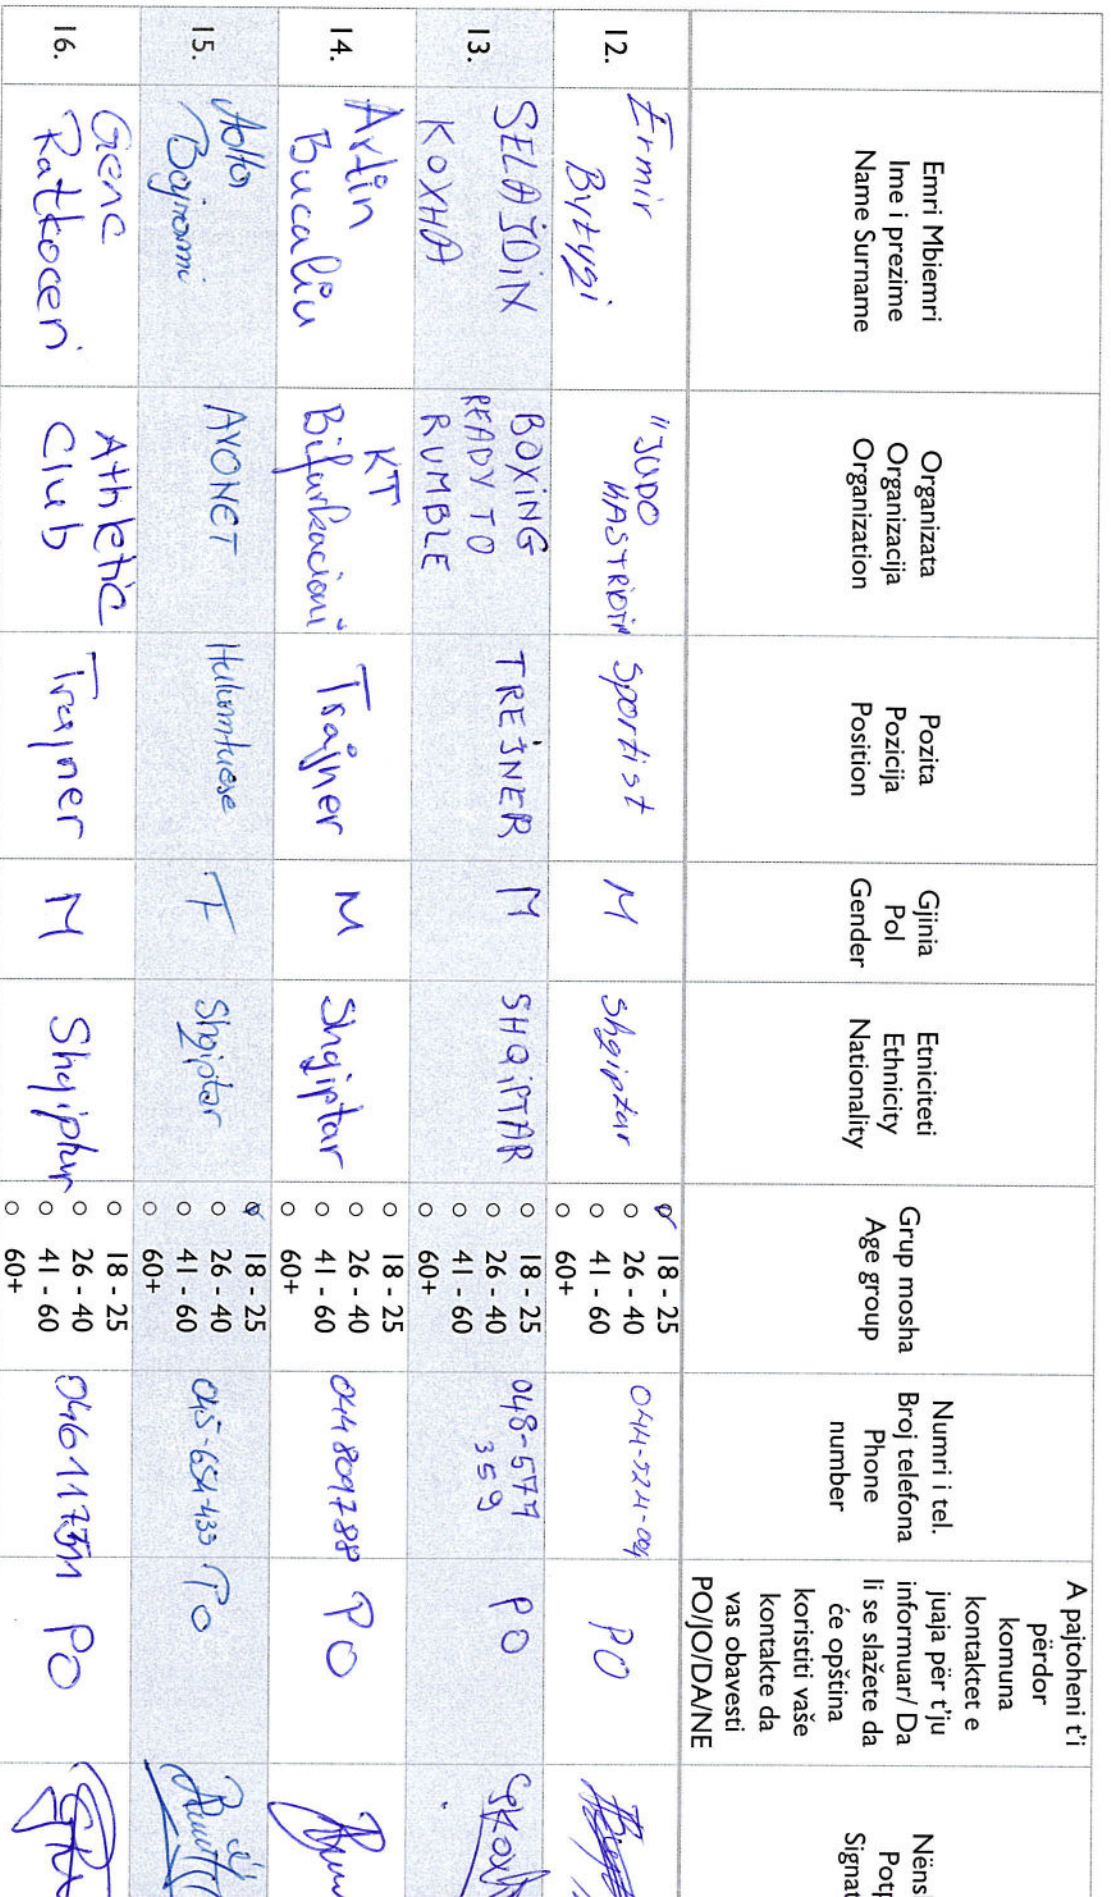 Emri Mbiemri
Ime i prezime
Name Surname
Organizata
Organizacija
Organization
Pozita
Pozicija
Position
Gjinia
Pol
Gender
Etniciteti
Ethnicity
Nationality
Grup mosha
Age group
Numri i tel.
Broj telefona
Phone
number
A pajtoheni t'i
përdor
komuna
kontaktet e
juaja për t'ju
informuar/ Da
li se slažete da
će opština
koristiti vaše
kontakte da
vas obavesti
PO/JO/DA/NE
Nëns
Potp
Signat
12.
Ermir
Bytyqi
"JUDO
Sportist
M
Shqiptar
18 - 25
26 - 40
41 - 60
60+
PO
13.
SELAJDIN
KOXHA
BOXING
READY TO
RUMBLE
TREJNER
M
SHQIPTAR
18 - 25
26 - 40
41 - 60
60+
048-577
359
PO
14.
Artin
Bucaliu
KT
Bifurkacioni
Trajner
M
Shqiptar
18 - 25
26 - 40
41 - 60
60+
044809788
PO
15.
Bajrami
AVONET
Hulumtuese
F
Shqiptar
18 - 25
26 - 40
41 - 60
60+
045-654-433
PO
16.
Genc
Ratkoceri
Athletic
Club
Trajner
M
Shqiptar
18 - 25
26 - 40
41 - 60
60+
PO